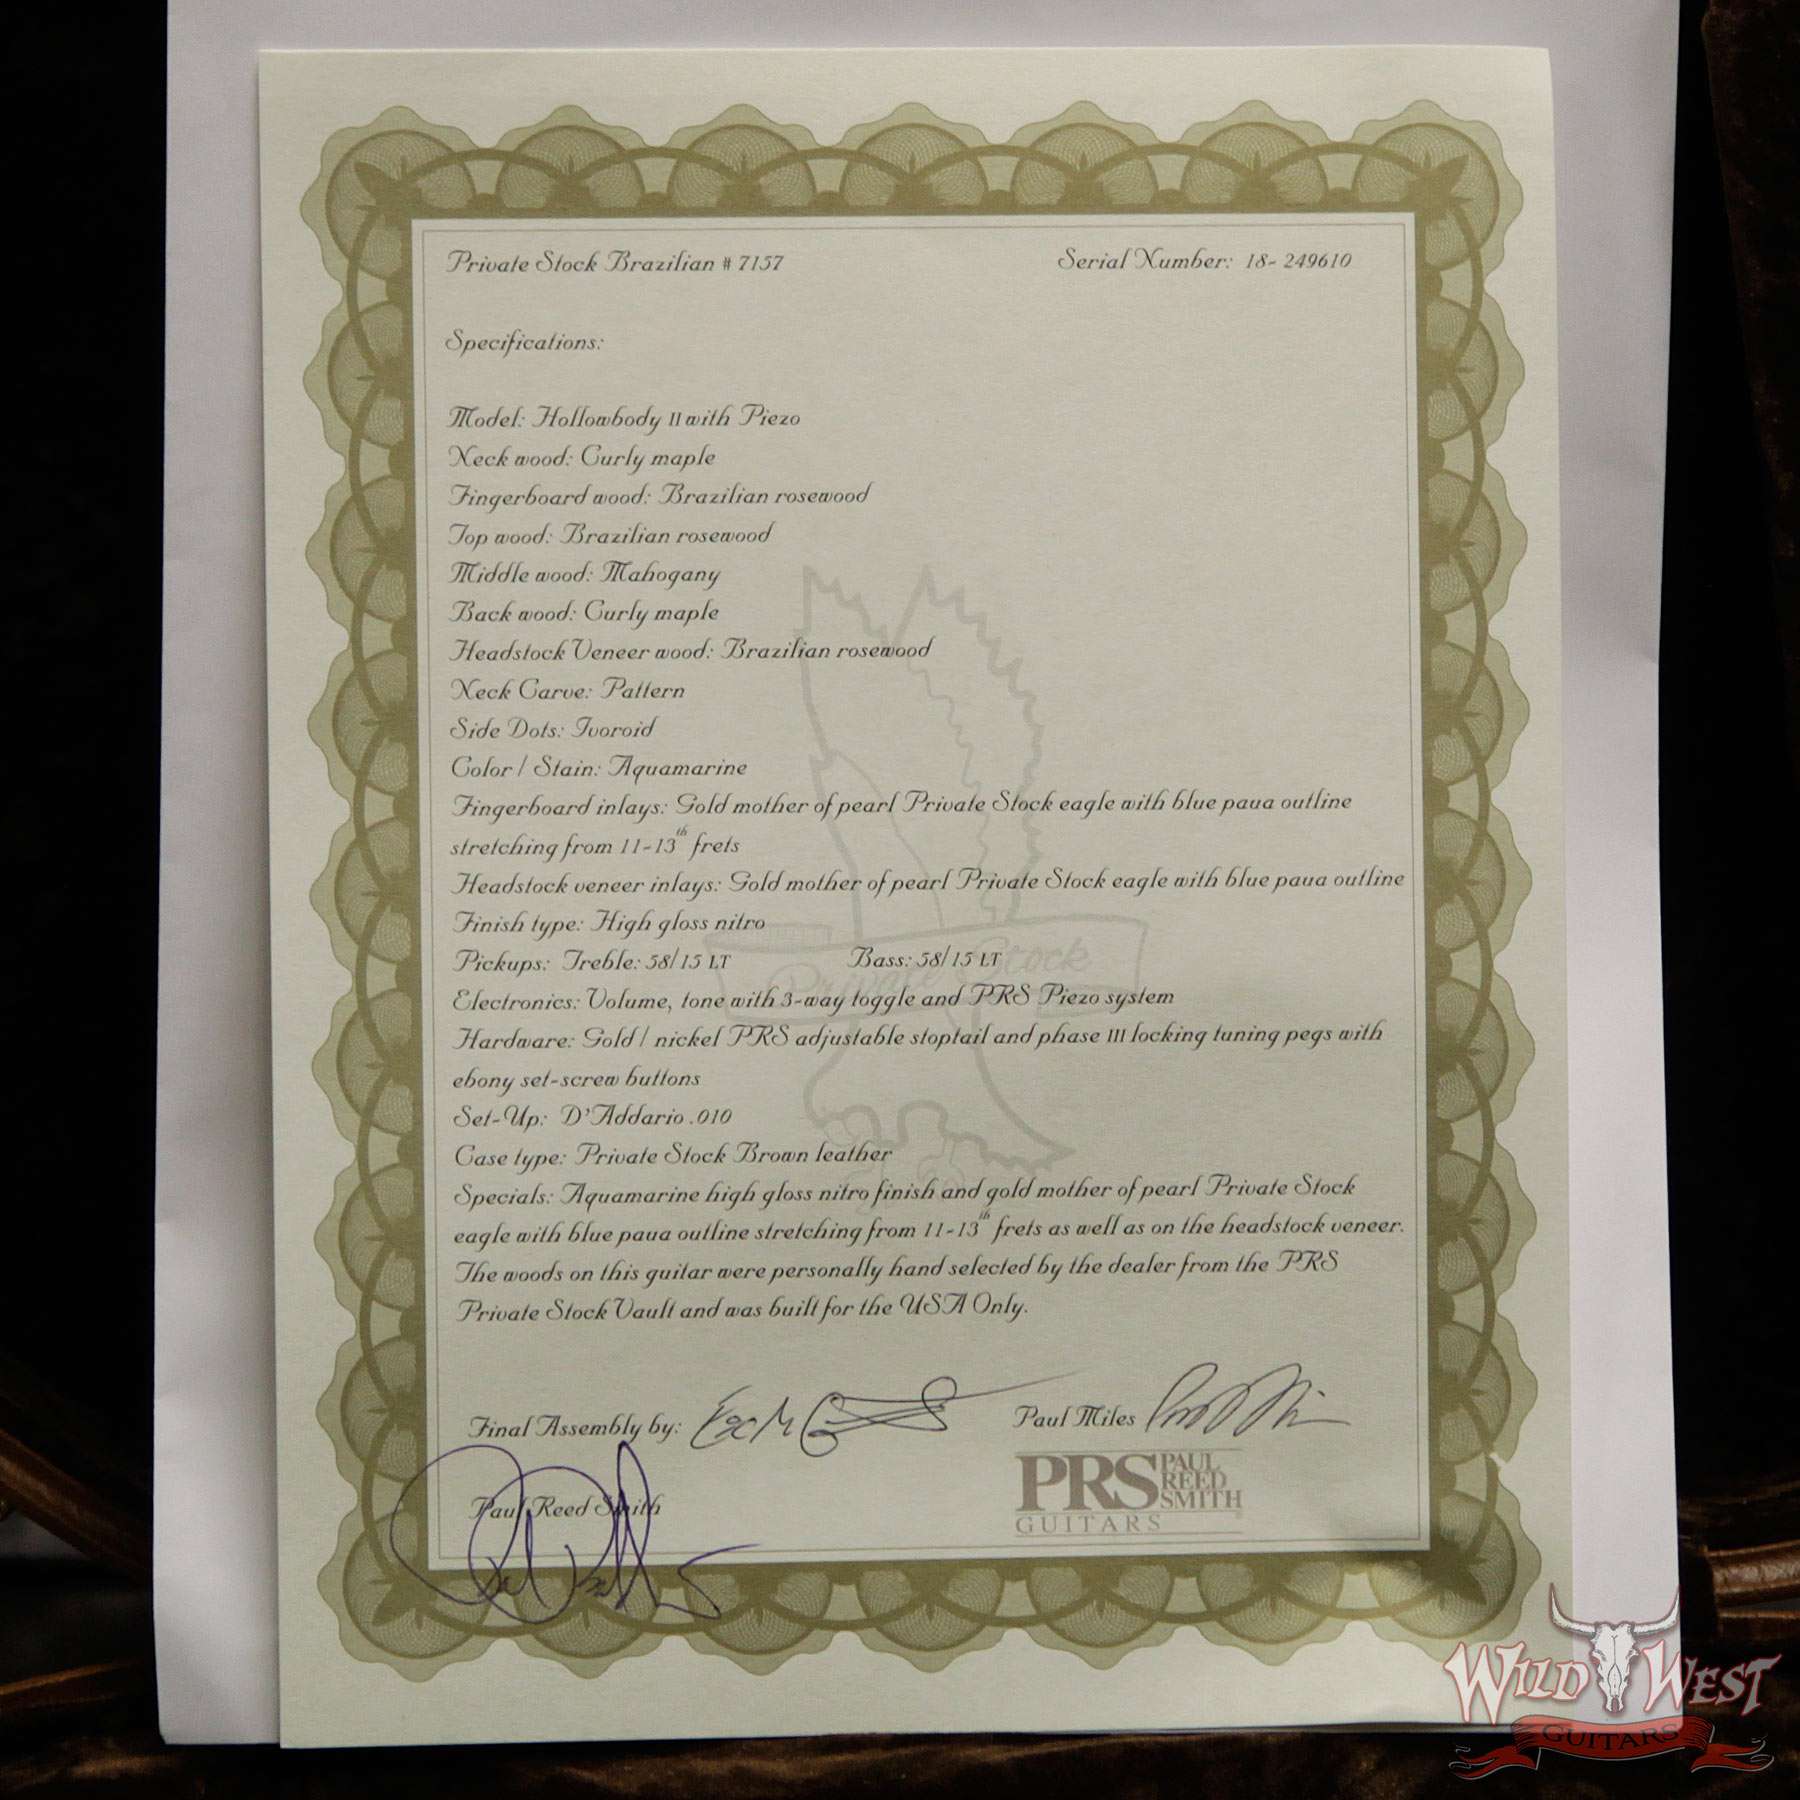 Private Stock Brazilian # 7157 Serial Number: 18- 249610
Specifications:
Model: Hollowbody II with Piezo
Neck wood: Curly maple
Fingerboard wood: Brazilian rosewood
Top wood: Brazilian rosewood
Middle wood: Mahogany
Back wood: Curly maple
Headstock Veneer wood: Brazilian rosewood
Neck Carve: Pattern
Side Dots: Ivoroid
Color / Stain: Aquamarine
Fingerboard inlays: Gold mother of pearl Private Stock eagle with blue paua outline
stretching from 11-13th frets
Headstock veneer inlays: Gold mother of pearl Private Stock eagle with blue paua outline
Finish type: High gloss nitro
Pickups: Treble: 58/15 LT Bass: 58/15 LT
Private Stock
Electronics: Volume, tone with 3-way toggle and PRS Piezo system
Hardware: Gold / nickel PRS adjustable stoptail and phase III locking tuning pegs with
ebony set-screw buttons
Set-Up: D'Addario .010
Case type: Private Stock Brown leather
Specials: Aquamarine high gloss nitro finish and gold mother of pearl Private Stock
eagle with blue paua outline stretching from 11-13th frets as well as on the headstock veneer.
The woods on this guitar were personally hand selected by the dealer from the PRS
Private Stock Vault and was built for the USA Only.
Final Assembly by: Paul Miles
Paul Reed Smith
PRS PAUL REED SMITH
GUITARS
WILD WEST
GUITARS